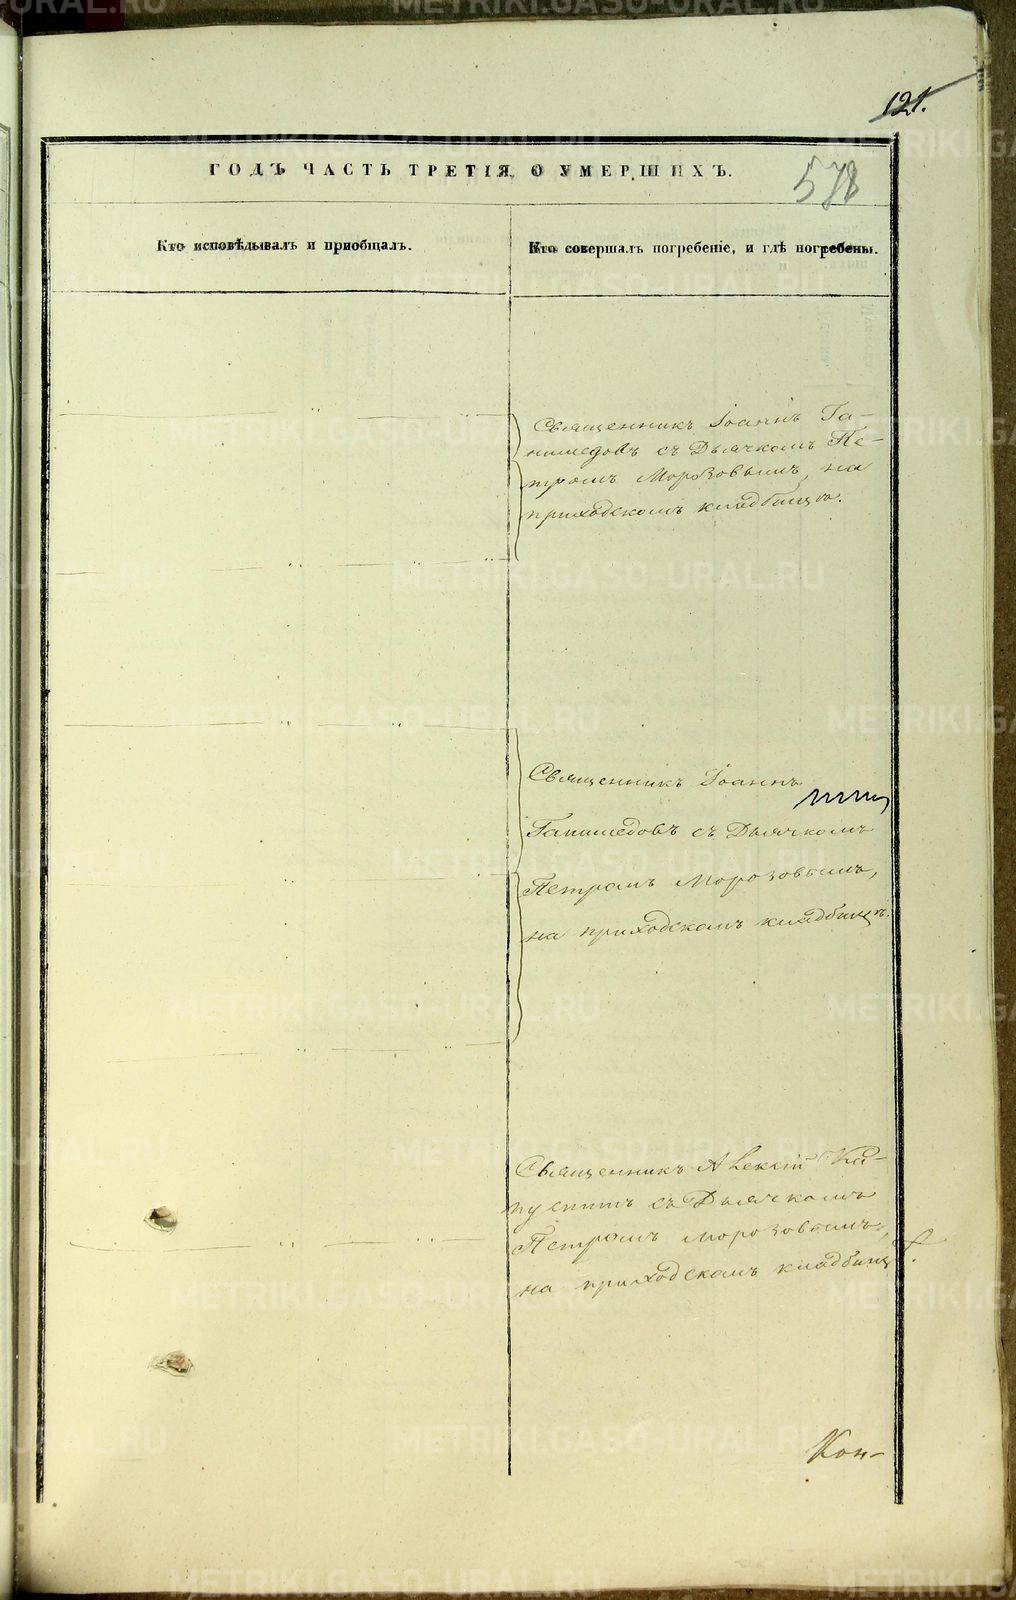 121.
ГОДЪ ЧАСТЬ ТРЕТІЯ, О УМЕРШИХЪ.
578
Кто исповѣдывалъ и приобщалъ.
Кто совершалъ погребеніе, и гдѣ погребены.
Священникъ Іоаннъ Га-
нимедовъ съ Дьячкомъ Пе-
тромъ Морозовымъ, на
приходскомъ кладбищѣ.
Священникъ Іоаннъ
Ганимедовъ съ Дьячкомъ
Петромъ Морозовымъ,
на приходскомъ кладбищѣ.
Священникъ Алексій Ка-
пустинъ съ Дьячкомъ
Петромъ Морозовымъ,
на приходскомъ кладбищѣ.
Кон-
METRIKI.GASO-URAL.RU